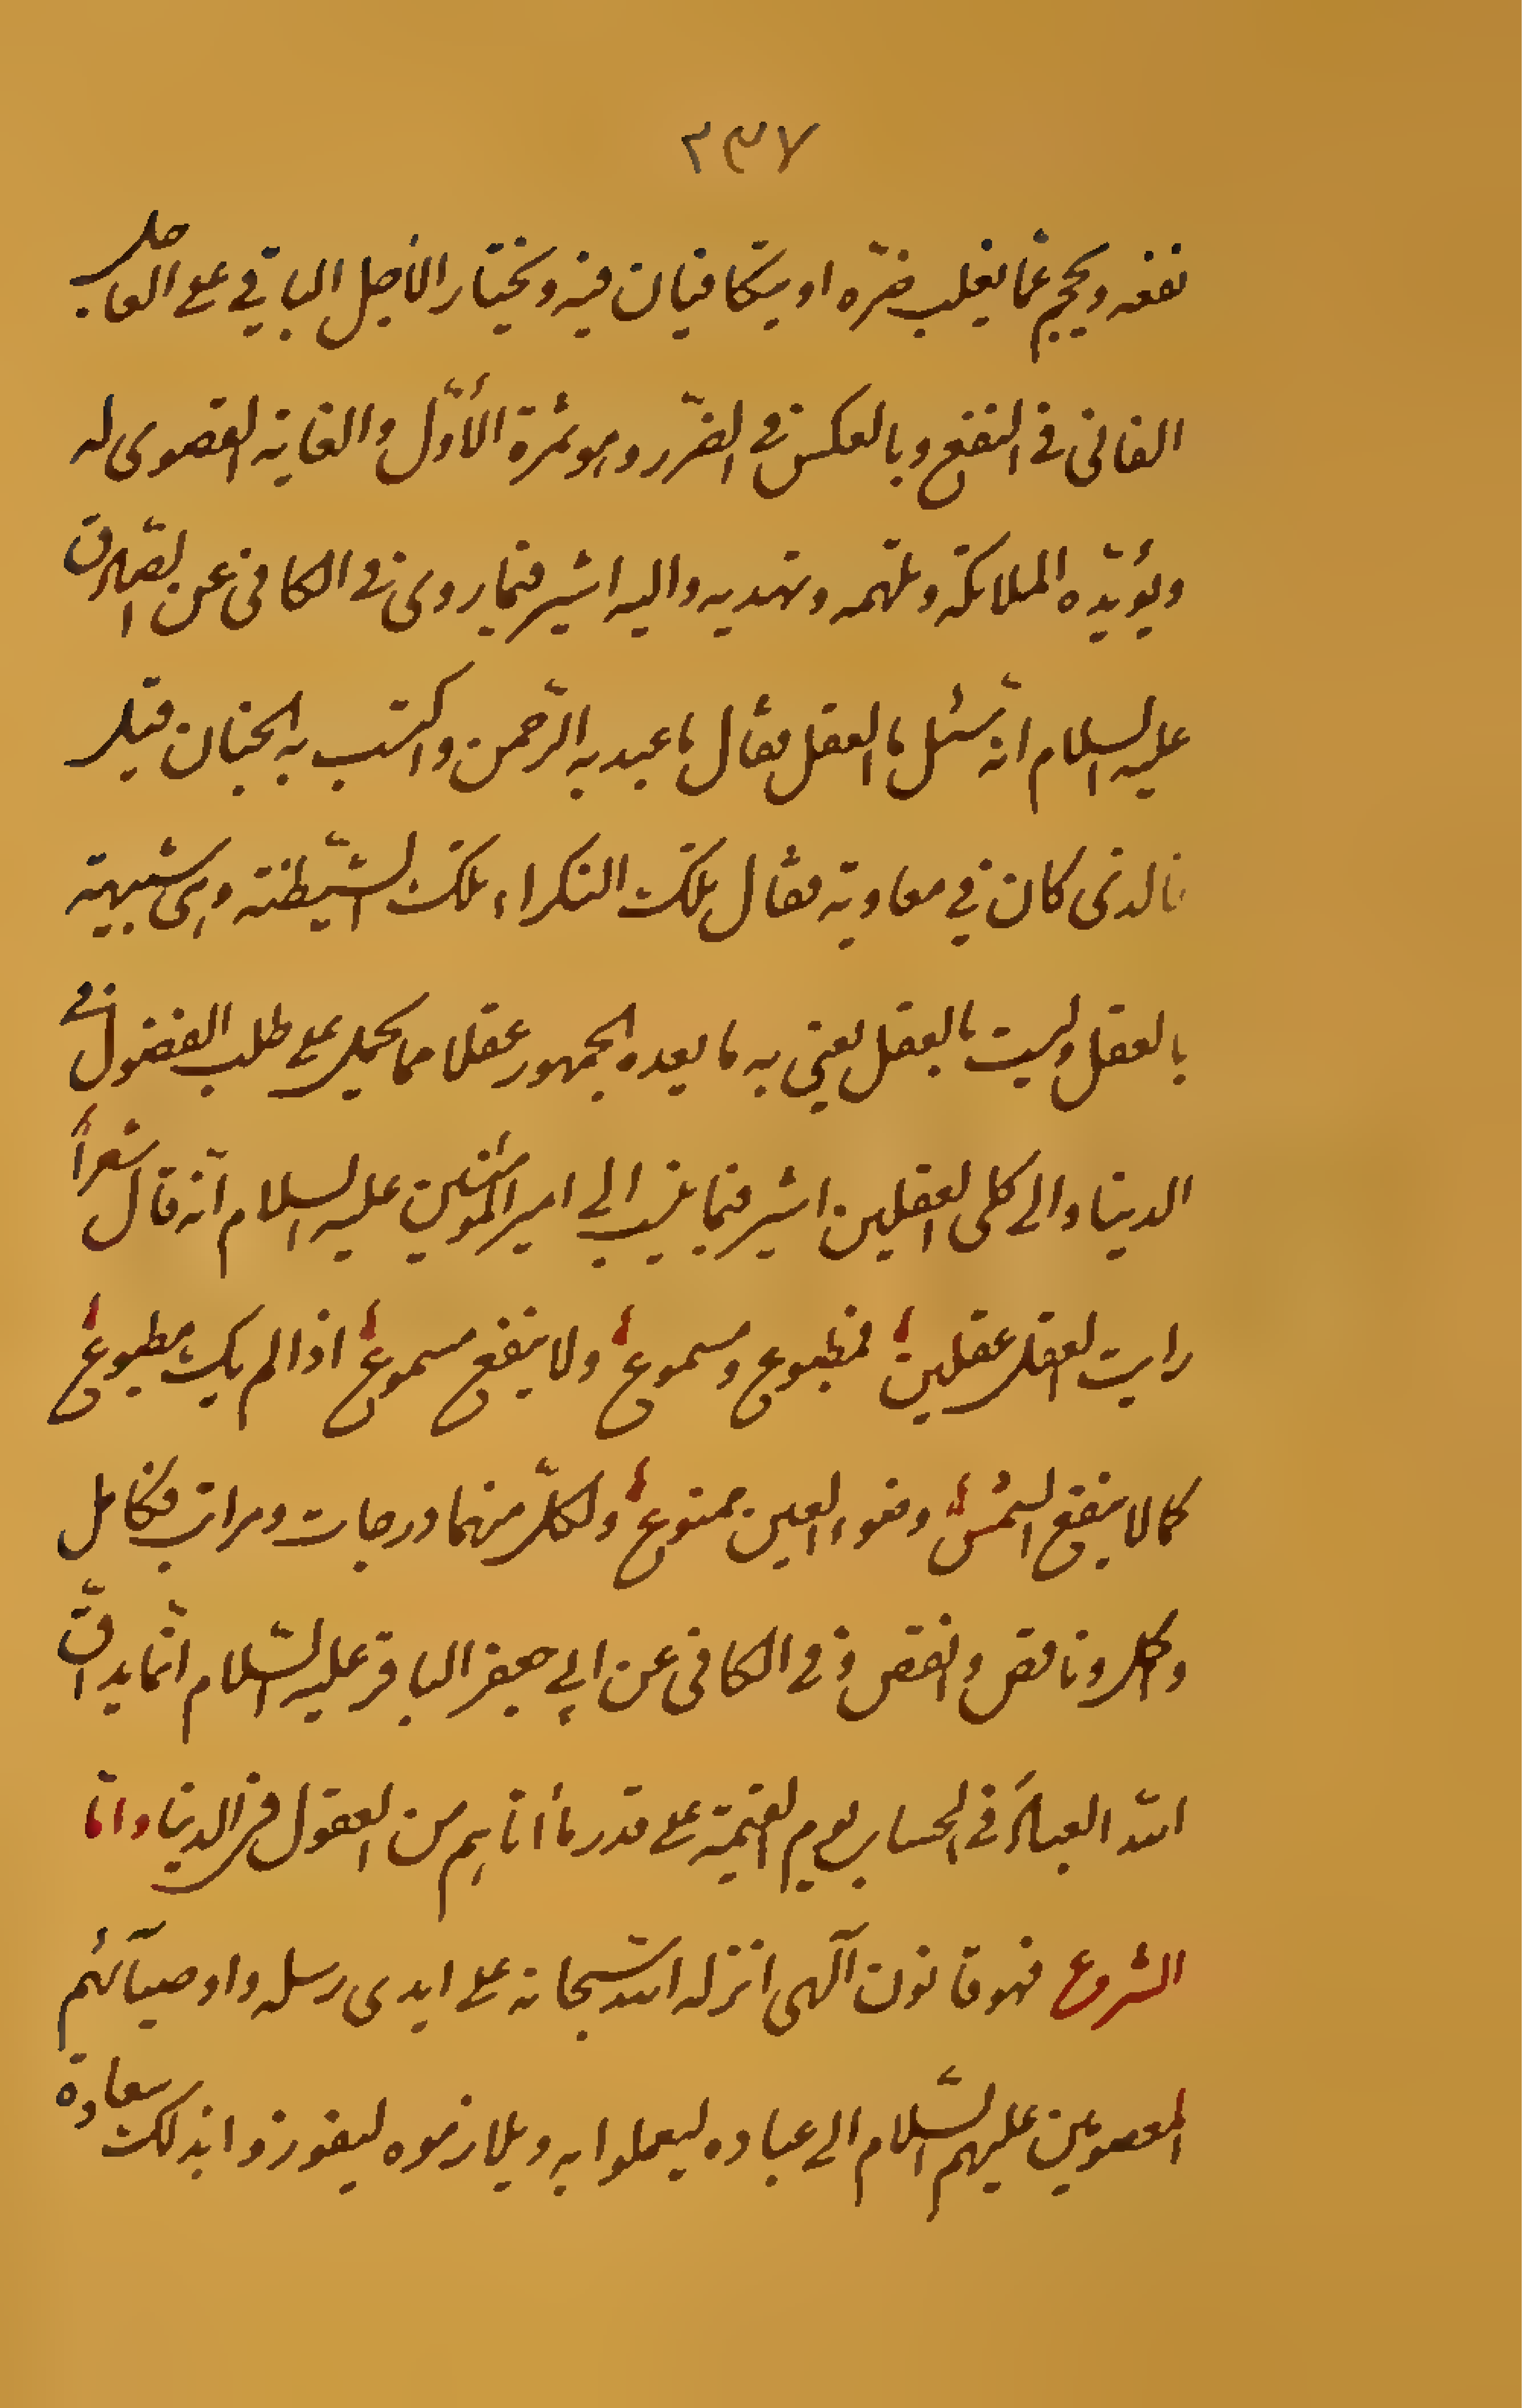 ٢٣٧
نفعه ويحجم عمّا يغلب ضرّه او يتكافيان فيه ويختار الأجل الباقي على العاجل
الفانى فى النفع وبالعكس فى الضّرر وهو ثمرة الأوّل والغاية القصوى له
ويؤيّده الملائكة وتلهمه وتهديه واليه اشير فيما روى فى الكافى عن الصّادق
عليه السلام انّه سئل ما العقل فقال ما عبد به الرّحمن واكتسب به الجنان قيل
فالذى كان في معاوية فقال تلك النكراء تلك الشّيطنة وهى شبيهة
بالعقل وليست بالعقل يعني به ما يعده الجمهور عقلا مما يحمل على طلب الفضول فى
الدنيا والى كلى العقلين اشير فيما ينسب الى امير المؤمنين عليه السلام انّه قال شعراً
رايت العقل عقلين فمطبوع ومسموع ولا ينفع مسموع اذا لم يك مطبوع
كما لا ينفع الشمس وضوء العين ممنوع ولكلّ منهما درجات ومراتب فكامل
واكمل وناقص وانقص وفى الكافى عن ابي جعفر الباقر عليه السّلام انّما يداقّ
الله العباد فى الحساب يوم القيمة على قدر ما اتاهم من العقول فى الدنيا وامّا
الشرع فهو قانون آلهى انزله الله سبحانه على ايدى رسله واوصيآئهم
المعصومين عليهم السّلام الى عباده ليعملوا به ويلازموه ليفوزوا بذلك سعادة